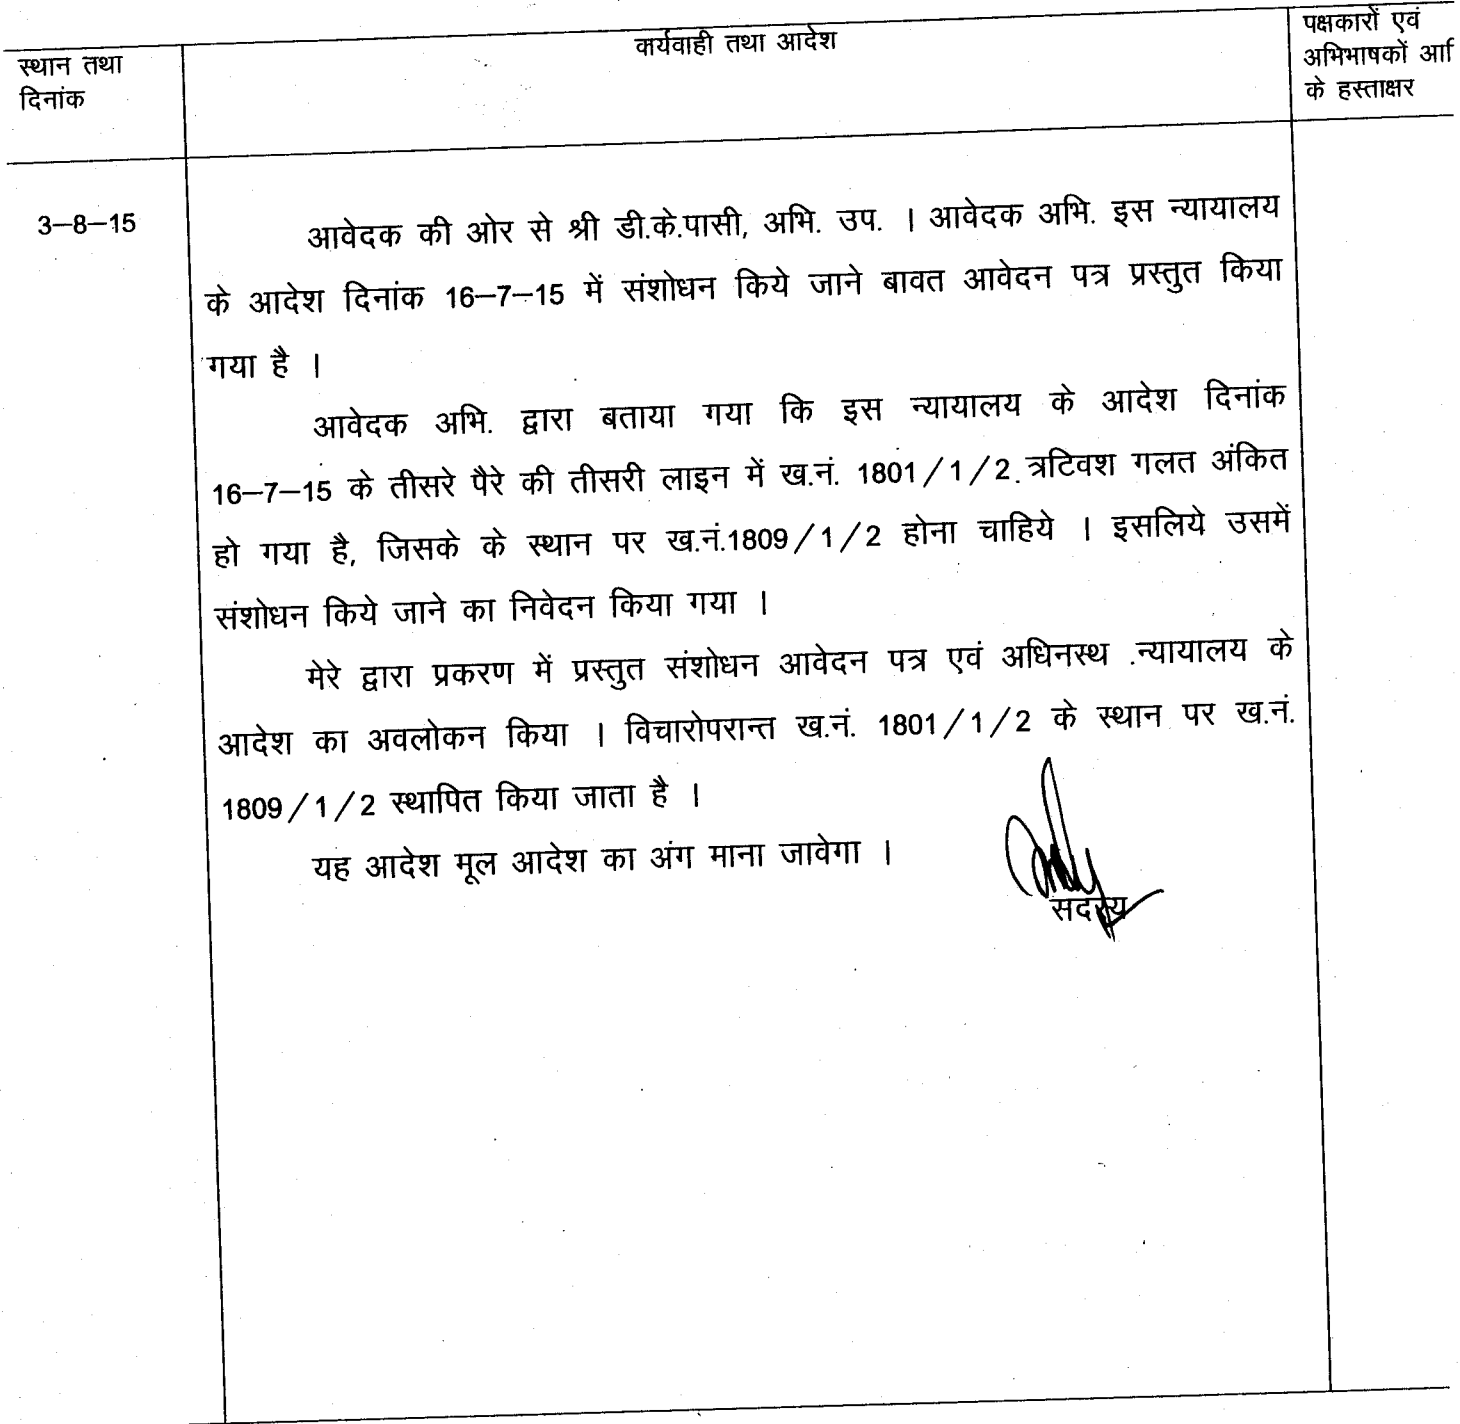 स्थान तथा
दिनांक
कार्यवाही तथा आदेश
पक्षकारों एवं
अभिभाषकों आि
के हस्ताक्षर
3–8–15
आवेदक की ओर से श्री डी.के.पासी, अभि. उप. । आवेदक अभि. इस न्यायालय
के आदेश दिनांक 16–7–15 में संशोधन किये जाने बावत आवेदन पत्र प्रस्तुत किया
गया है ।
आवेदक अभि. द्वारा बताया गया कि इस न्यायालय के आदेश दिनांक
16–7–15 के तीसरे पैरे की तीसरी लाइन में ख.नं. 1801/1/2 त्रटिवश गलत अंकित
हो गया है, जिसके के स्थान पर ख.नं.1809/1/2 होना चाहिये । इसलिये उसमें
संशोधन किये जाने का निवेदन किया गया ।
मेरे द्वारा प्रकरण में प्रस्तुत संशोधन आवेदन पत्र एवं अधिनस्थ न्यायालय के
आदेश का अवलोकन किया । विचारोपरान्त ख.नं. 1801/1/2 के स्थान पर ख.नं.
1809/1/2 स्थापित किया जाता है ।
यह आदेश मूल आदेश का अंग माना जावेगा ।
सदस्य